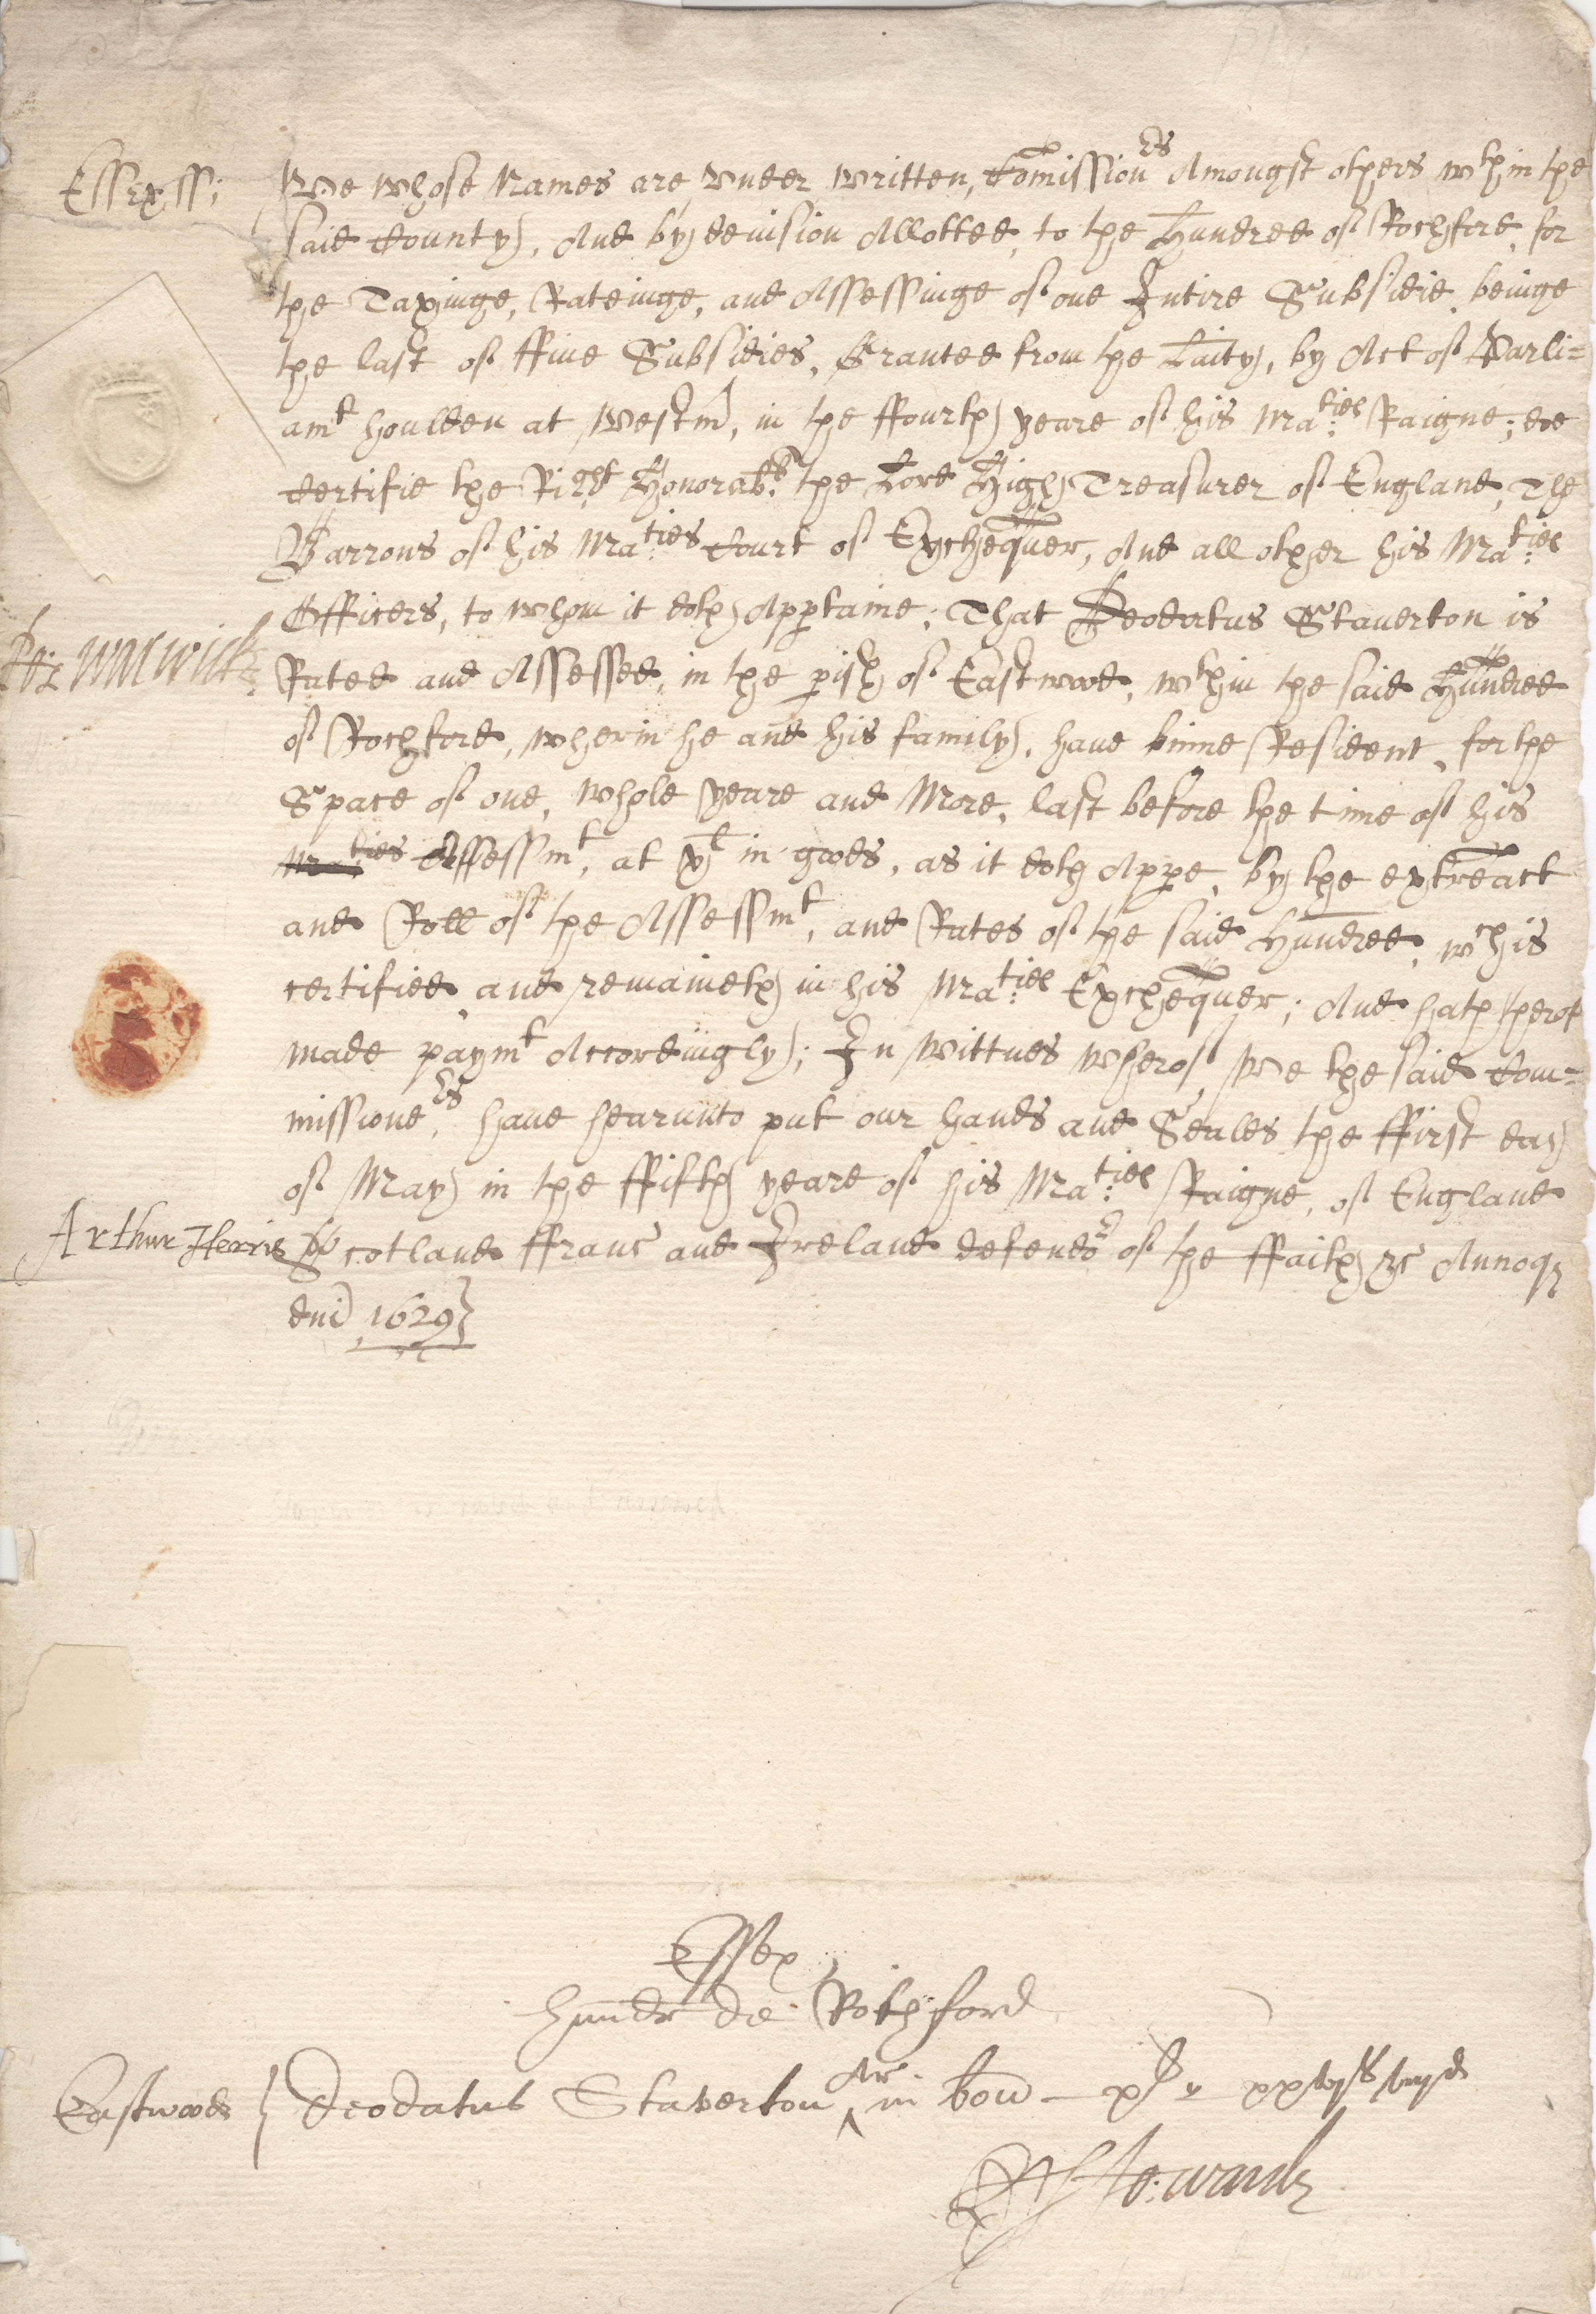 Essex ss:
We whose Names are vnder written, Comission^rs Amongst others w^thin the
said County, And by deuision Allotted, to the Hundred of Rochford, for
the Taxinge, Rateinge, and Assessinge of one Intire Subsidie, beinge
the last of ffiue Subsidies, Graunted from the Laity, by Act of Parli=
am^t houlden at Westm, in the ffourth yeare of his Ma:^ties Raigne; doe
Certifie the Right Honorab:^le the Lord High Treasurer of England, The
Barrons of his Ma:^ties Court of Exchequer, And all other his Ma:^ties
Officers, to whom it doth Apptaine; That Deodatus Stauerton is
Ro: Warwick
Rated and Assessed, in the pish of Eastwood, w^thin the said Hundred
of Rochford, wherin he and his family, haue binne Resident, for the
Space of one, whole yeare and More, last before the time of his
Ma:^ties Assessm^t, at x^l in goods, as it doth Appe, by the extreact
and Roll of the Assessm^t, and Rates of the said Hundred, w^ch is
certified and remaineth in his Ma:^ties Exchequer; And hath therof
made paym^t Accordingly; In Wittnes wherof, We the said Com=
missione^rs, haue hearunto put our hands and Seales the ffirst day
of May in the ffifth yeare of his Ma:^ties Raigne, of England
Arthur Herris
Scotland ffranc and Ireland defendo^r of the ffaith &c Annoq
dni 1629
Essex
Hundr de Rochford
Eastwood } Deodatus Staverton Ar in bon – x^l – xxvj^s viij^d